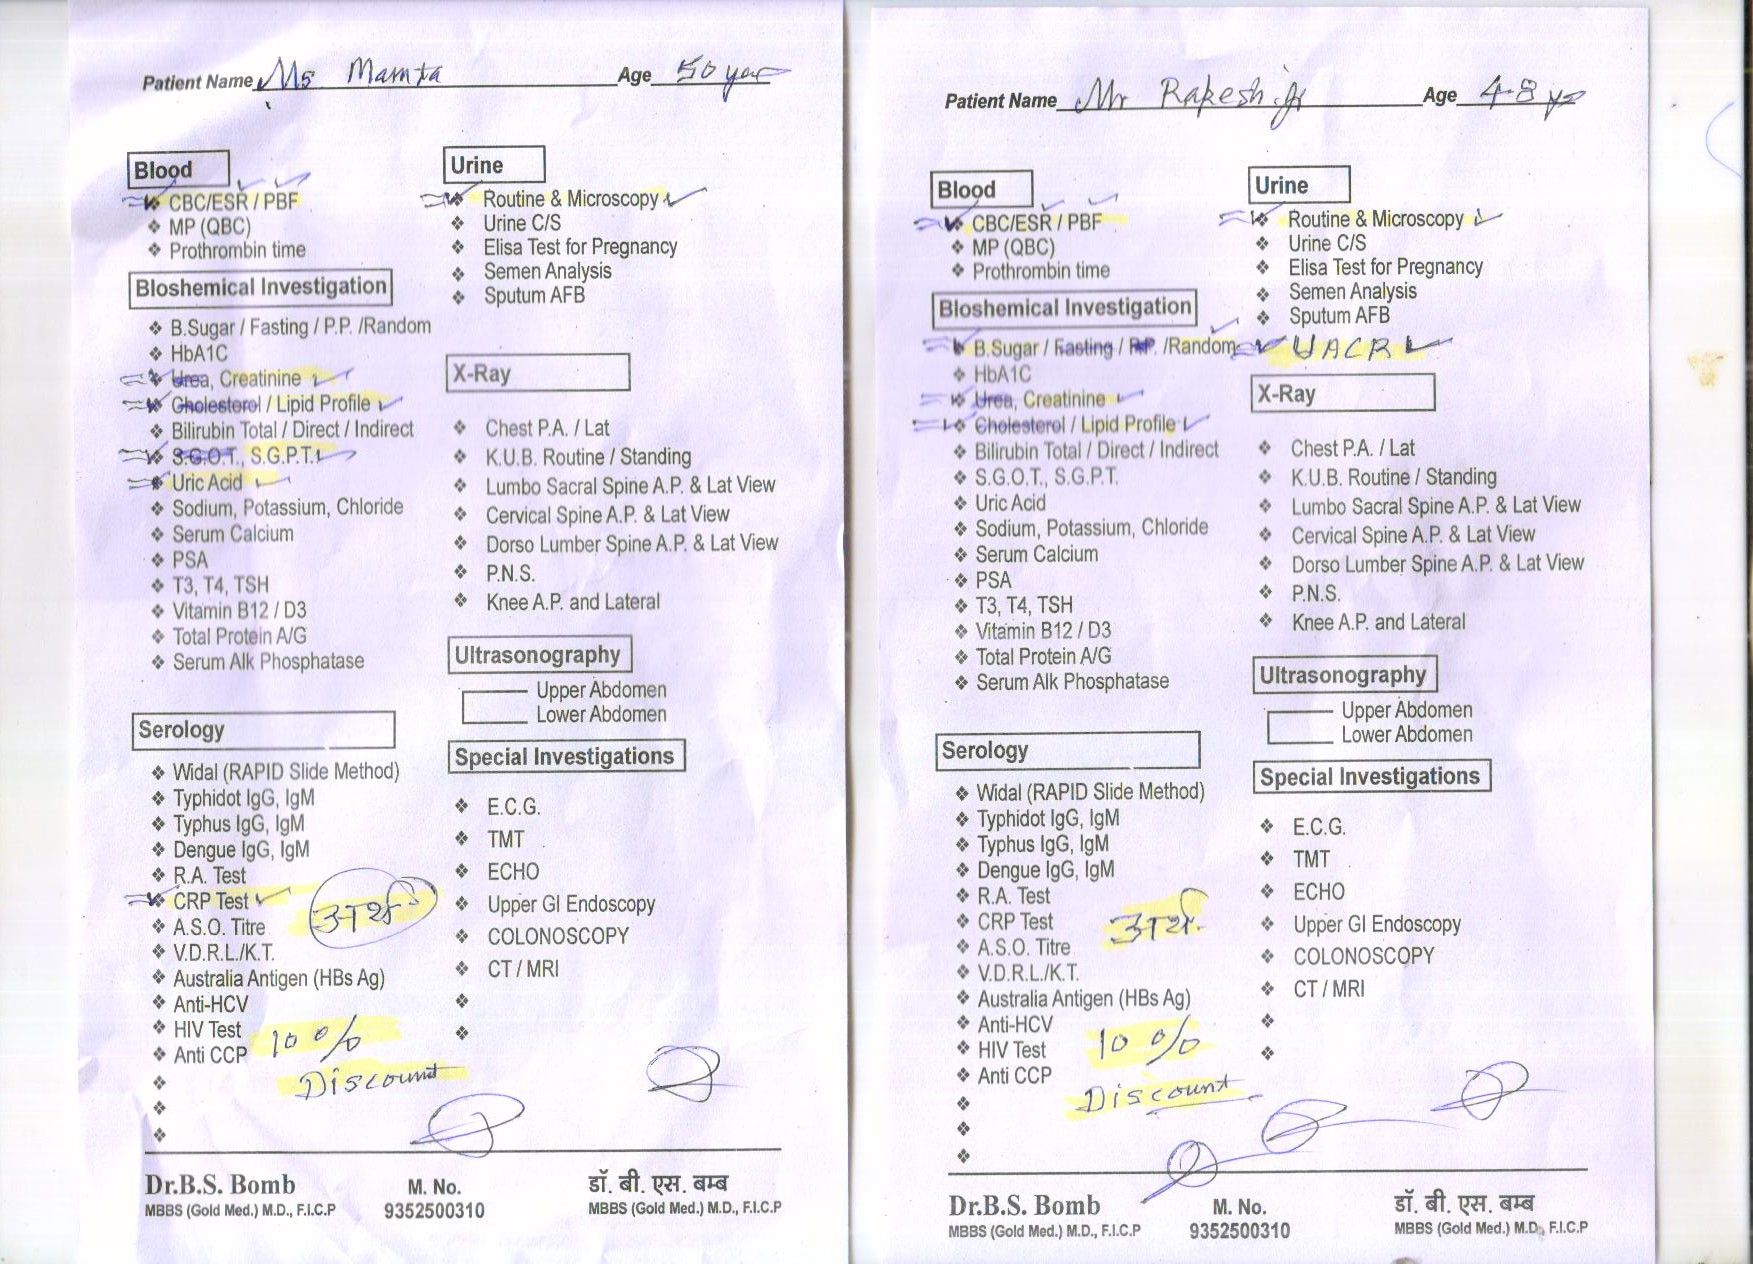 Patient Name Ms Mamta Age 50 year
Blood
❖ CBC/ESR / PBF
❖ MP (QBC)
❖ Prothrombin time
Bloshemical Investigation
❖ B.Sugar / Fasting / P.P. /Random
❖ HbA1C
❖ Urea, Creatinine
❖ Cholesterol / Lipid Profile
❖ Bilirubin Total / Direct / Indirect
❖ S.G.O.T., S.G.P.T.
❖ Uric Acid
❖ Sodium, Potassium, Chloride
❖ Serum Calcium
❖ PSA
❖ T3, T4, TSH
❖ Vitamin B12 / D3
❖ Total Protein A/G
❖ Serum Alk Phosphatase
Serology
❖ Widal (RAPID Slide Method)
❖ Typhidot IgG, IgM
❖ Typhus IgG, IgM
❖ Dengue IgG, IgM
❖ R.A. Test
❖ CRP Test
अर्थ
❖ A.S.O. Titre
❖ V.D.R.L./K.T.
❖ Australia Antigen (HBs Ag)
❖ Anti-HCV
❖ HIV Test
❖ Anti CCP
10 %
Discount
Urine
❖ Routine & Microscopy
❖ Urine C/S
❖ Elisa Test for Pregnancy
❖ Semen Analysis
❖ Sputum AFB
X-Ray
❖ Chest P.A. / Lat
❖ K.U.B. Routine / Standing
❖ Lumbo Sacral Spine A.P. & Lat View
❖ Cervical Spine A.P. & Lat View
❖ Dorso Lumber Spine A.P. & Lat View
❖ P.N.S.
❖ Knee A.P. and Lateral
Ultrasonography
Upper Abdomen
Lower Abdomen
Special Investigations
❖ E.C.G.
❖ TMT
❖ ECHO
❖ Upper GI Endoscopy
❖ COLONOSCOPY
❖ CT / MRI
Dr.B.S. Bomb
MBBS (Gold Med.) M.D., F.I.C.P
M. No.
9352500310
डॉ. बी. एस. बम्ब
MBBS (Gold Med.) M.D., F.I.C.P
Patient Name Mr Rakesh Jr Age 48 yr
Blood
❖ CBC/ESR / PBF
❖ MP (QBC)
❖ Prothrombin time
Bloshemical Investigation
❖ B.Sugar / Fasting / P.P. /Random
❖ HbA1C
❖ Urea, Creatinine
❖ Cholesterol / Lipid Profile
❖ Bilirubin Total / Direct / Indirect
❖ S.G.O.T., S.G.P.T.
❖ Uric Acid
❖ Sodium, Potassium, Chloride
❖ Serum Calcium
❖ PSA
❖ T3, T4, TSH
❖ Vitamin B12 / D3
❖ Total Protein A/G
❖ Serum Alk Phosphatase
Serology
❖ Widal (RAPID Slide Method)
❖ Typhidot IgG, IgM
❖ Typhus IgG, IgM
❖ Dengue IgG, IgM
❖ R.A. Test
❖ CRP Test
अर्थ
❖ A.S.O. Titre
❖ V.D.R.L./K.T.
❖ Australia Antigen (HBs Ag)
❖ Anti-HCV
❖ HIV Test
❖ Anti CCP
10 %
Discount
Urine
❖ Routine & Microscopy
❖ Urine C/S
❖ Elisa Test for Pregnancy
❖ Semen Analysis
❖ Sputum AFB
UACR
X-Ray
❖ Chest P.A. / Lat
❖ K.U.B. Routine / Standing
❖ Lumbo Sacral Spine A.P. & Lat View
❖ Cervical Spine A.P. & Lat View
❖ Dorso Lumber Spine A.P. & Lat View
❖ P.N.S.
❖ Knee A.P. and Lateral
Ultrasonography
Upper Abdomen
Lower Abdomen
Special Investigations
❖ E.C.G.
❖ TMT
❖ ECHO
❖ Upper GI Endoscopy
❖ COLONOSCOPY
❖ CT / MRI
Dr.B.S. Bomb
MBBS (Gold Med.) M.D., F.I.C.P
M. No.
9352500310
डॉ. बी. एस. बम्ब
MBBS (Gold Med.) M.D., F.I.C.P